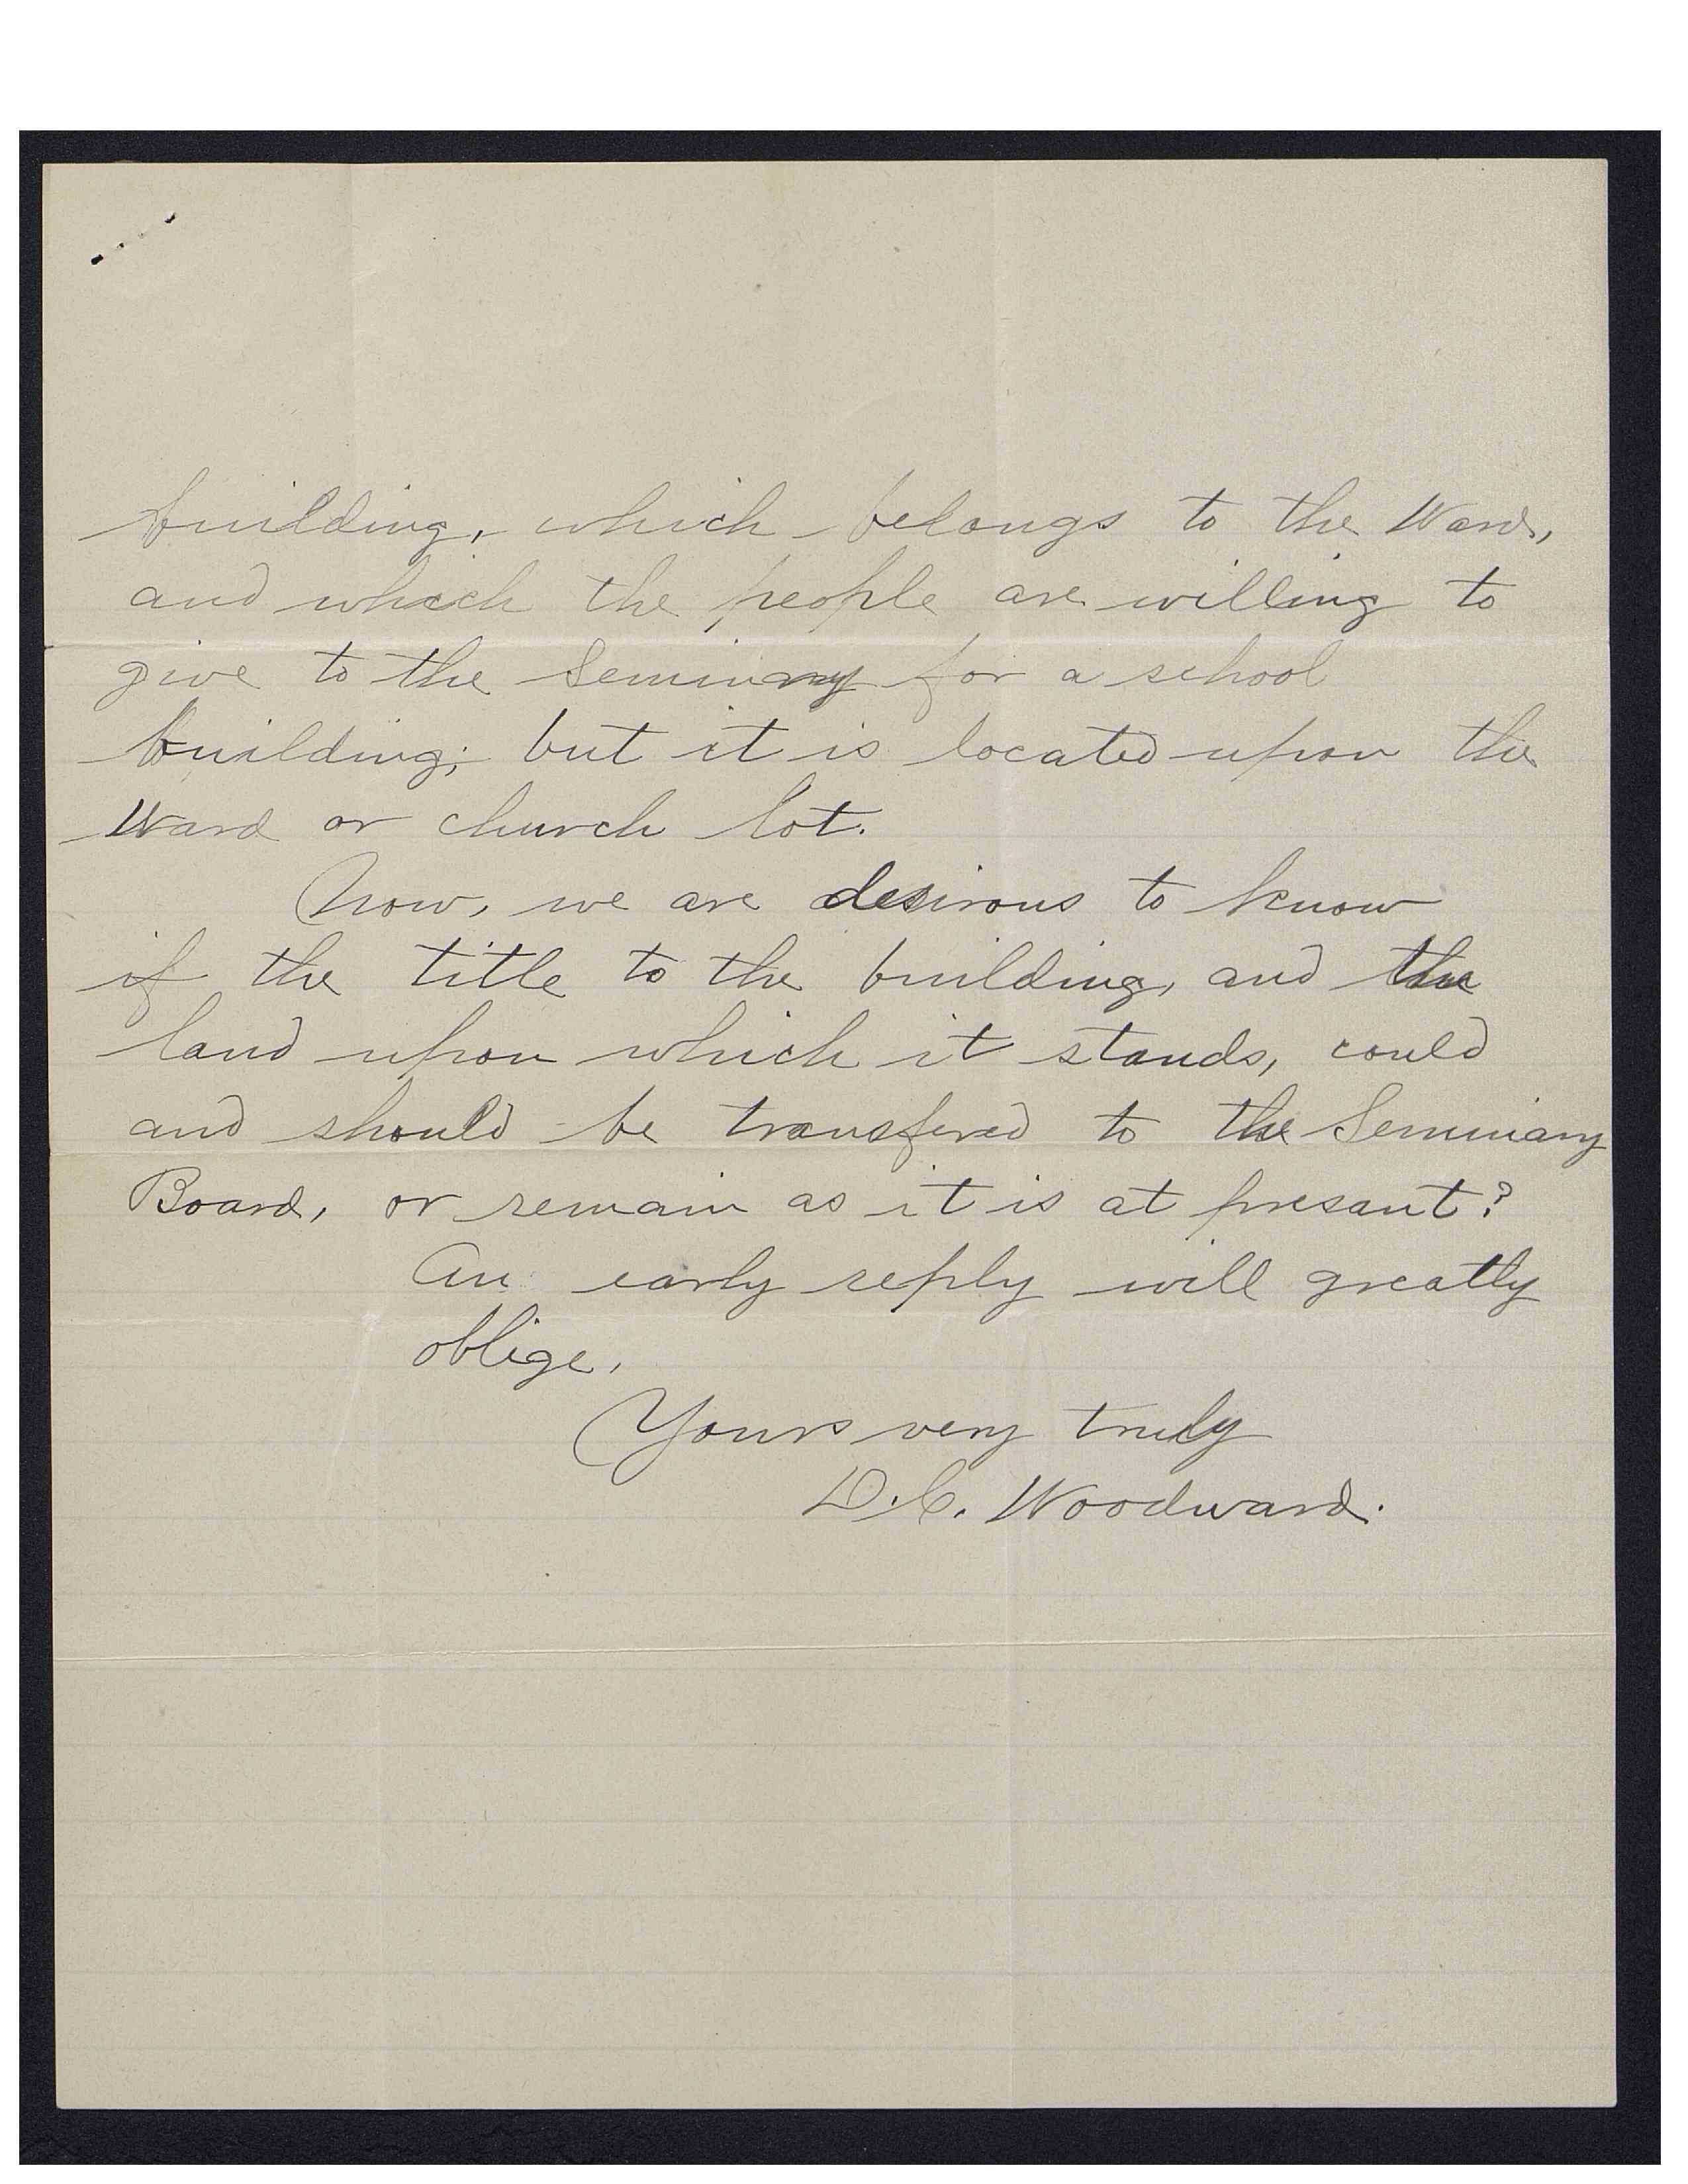 building, which belongs to the Ward,
and which the people are willing to
give to the Seminary for a school
building; but it is located upon the
Ward or church lot.
Now, we are desirous to know
if the title to the building, and the
land upon which it stands, could
and should be transfered to the Seminary
Board, or remain as it is at presant?
An early reply will greatly
oblige,
Yours very truly
D.C. Woodward.